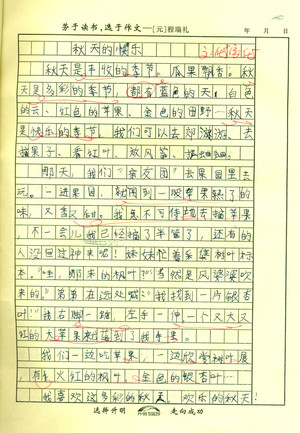 劳于读书，逸于作文——[元]程端礼
年 月 日
秋天的快乐
秋天是丰收的季节。瓜果飘香。秋
天是多彩的季节，蓝色的天，白色
的云、红色的苹果、金色的田野…秋天
是快乐的季节。我们可以去郊游、去
摘果子、看红叶、放风筝、
那天，我们"亲友团"去果园里去
玩。一进果园，就闻到一股苹果熟了的
味，又香又甜。我急不可待地去摘苹果
，不一会儿我已经摘了半筐了，还有的
人没回过神来呢！妹妹忙着采集树叶标
本。"哇，那来的枫叶？""当然是风婆婆吹
来的。"弟弟在远处喊："我找到一片银杏
叶！"我右脚一踮，左手一伸，一个又大又
红的大苹果就落到了我手里。
我们一边吃苹果，一边欣赏树叶展
，有火红的枫叶、金色的银杏叶…
我喜欢这多彩的秋天，欢乐的秋天！
选择升明 走向成功